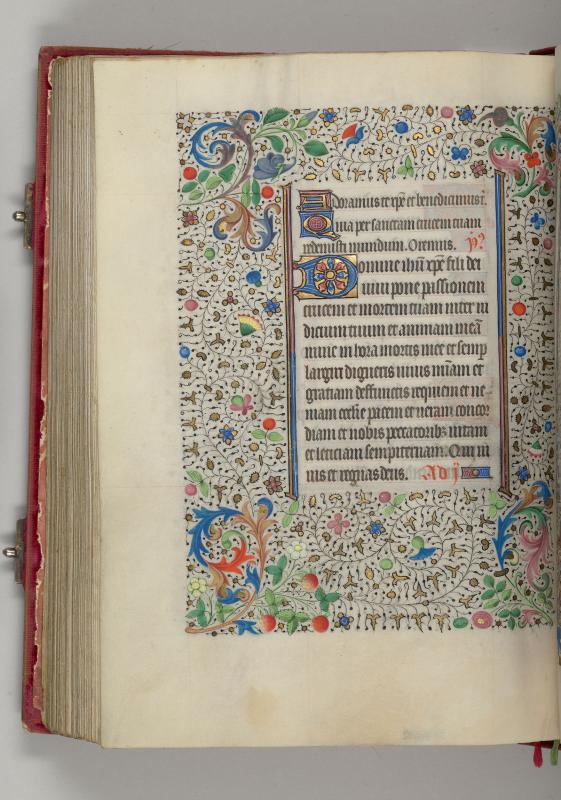 Adoramus te xp̄e et benedicimus t.
Quia per sanctam crucem tuam
redemisti mundum. Oremus.
Domine ihū xp̄e fili dei
viui pone passionem
crucem et mortem tuam inter iu
dicium tuum et animam meā
nunc in hora mortis mee et semp̄
largiri digneris viuis m̄iam et
gratiam deffunctis requiem et ve
niam eccl̄ie pacem et veram concor
diam et nobis peccatorib; uitam
et leticiam sempiternam. Qui vi
uis et regnas deus. Ad